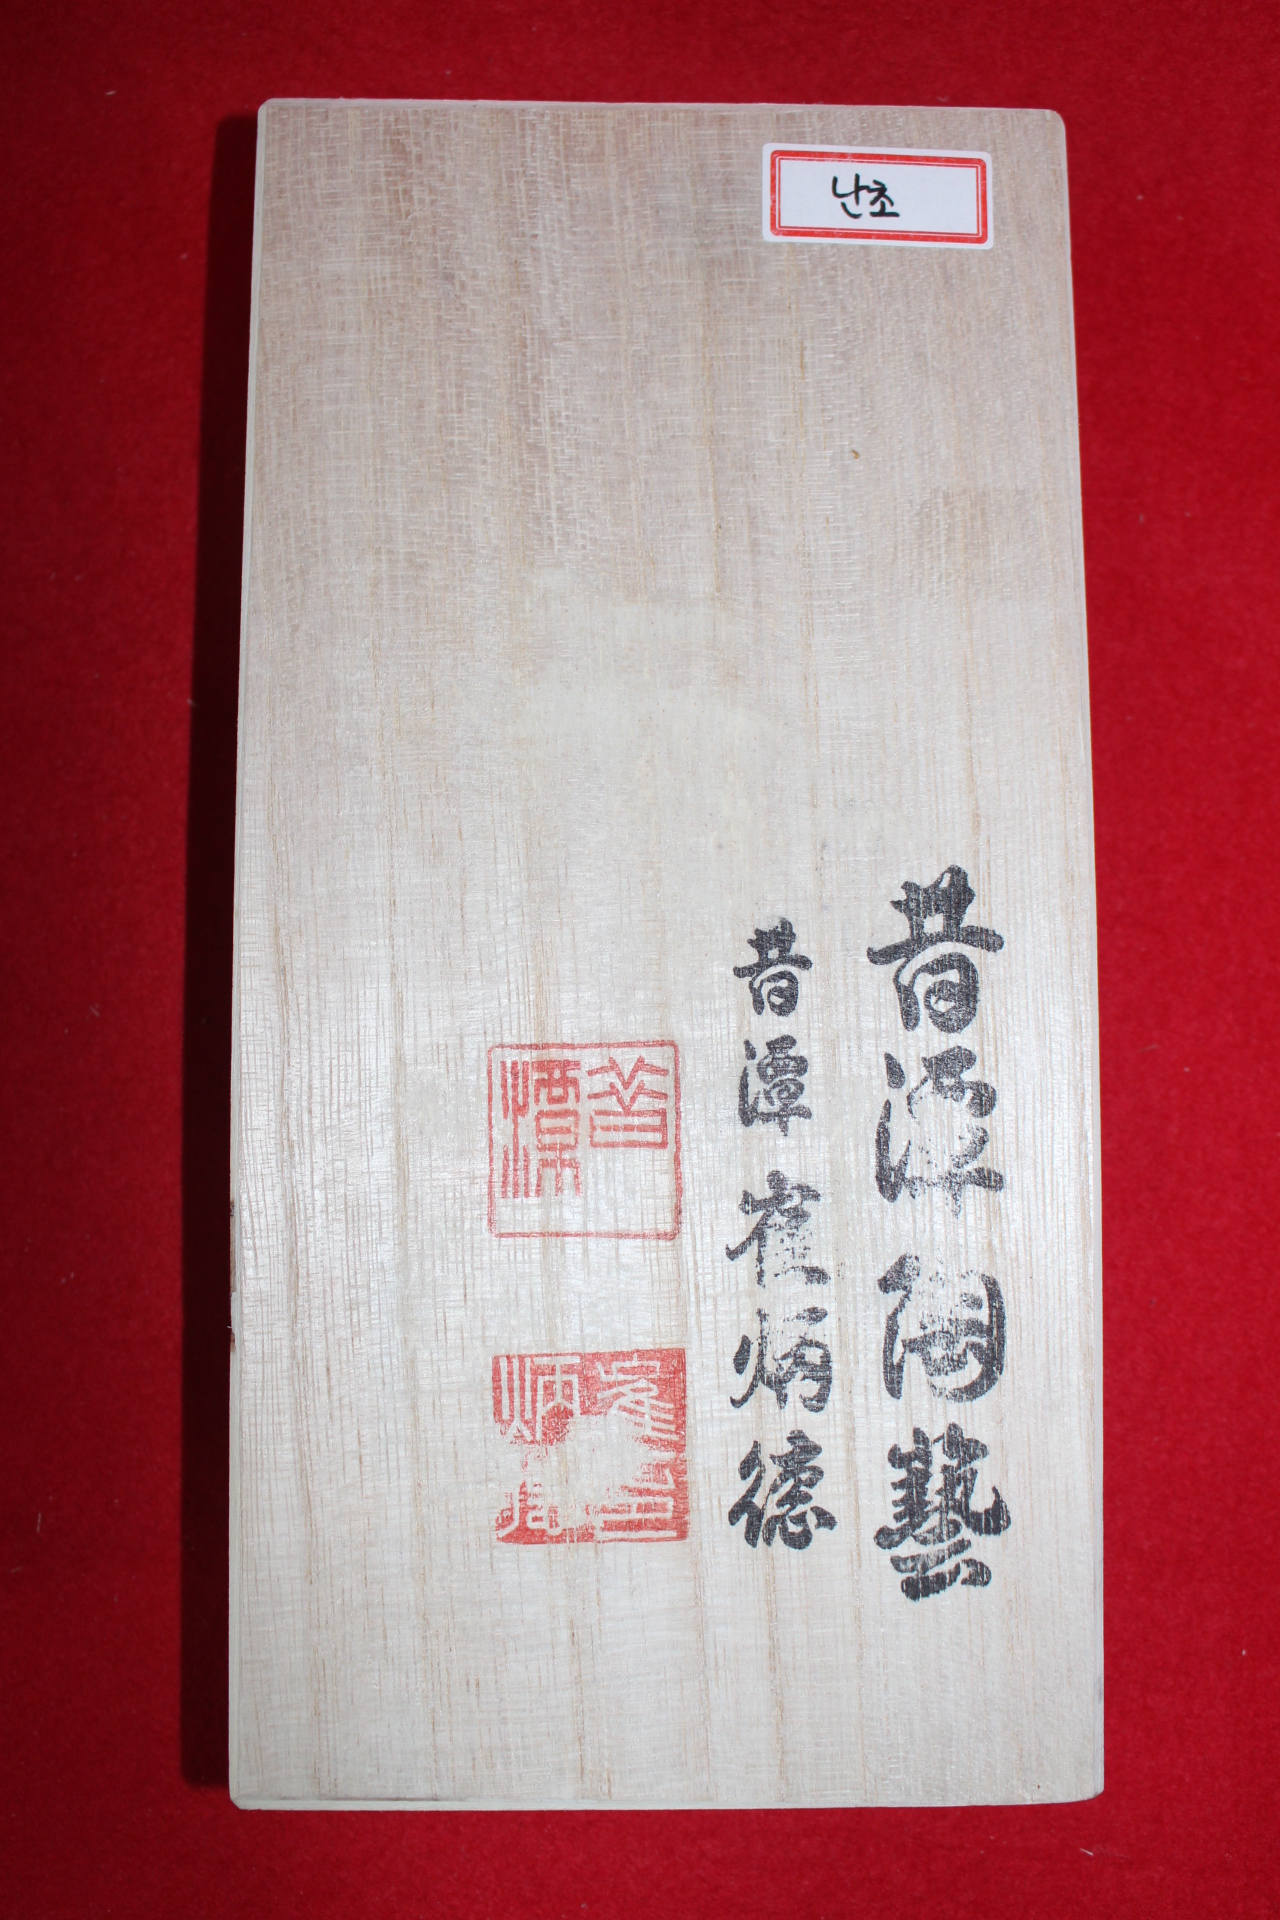 난초
昔潭陶藝
昔潭 崔炳德
昔潭